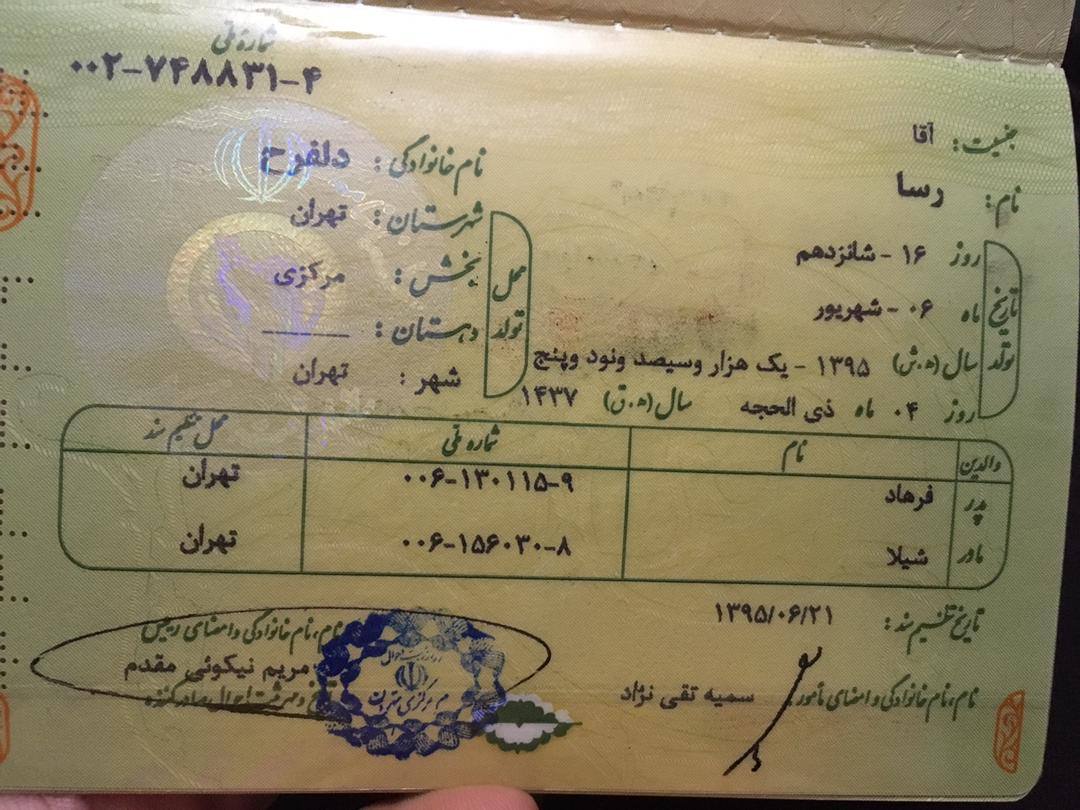 شماره ملی
۰۰۲-۷۴۸۸۳۱-۴
جنسیت: آقا
نام: رسا
نام خانوادگی: دلفرح
تاریخ تولد
روز ۱۶ - شانزدهم
ماه ۰۶ - شهریور
سال (ه.ش) ۱۳۹۵ - یک هزار وسیصد ونود وپنج
روز ۰۴ ماه ذی الحجه سال (ه.ق) ۱۴۳۷
محل تولد
شهرستان: تهران
بخش: مرکزی
دهستان:
شهر: تهران
والدین نام شماره ملی محل تنظیم سند
پدر فرهاد ۰۰۶-۱۳۰۱۱۵-۹ تهران
مادر شیلا ۰۰۶-۱۵۶۰۳۰-۸ تهران
تاریخ تنظیم سند: ۱۳۹۵/۰۶/۲۱
نام، نام خانوادگی و امضای مأمور: سمیه تقی نژاد
نام، نام خانوادگی و امضای رییس
مریم نیکوئی مقدم